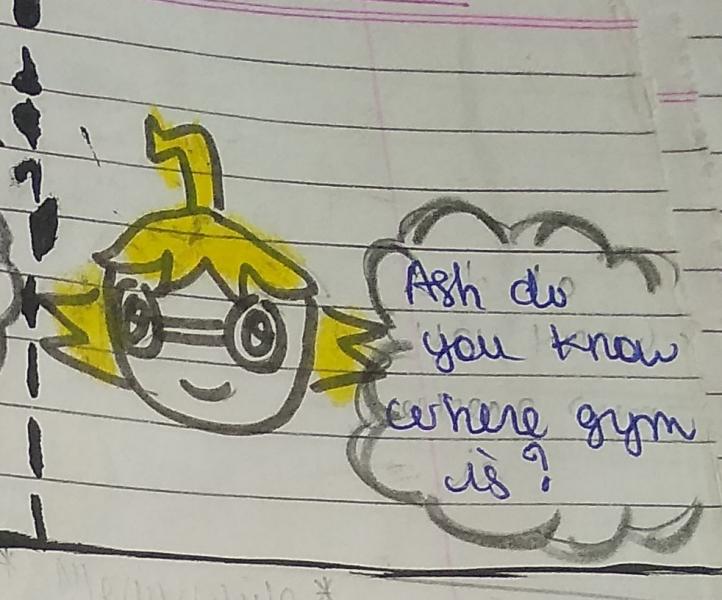 Ash do
you know
where gym
is?